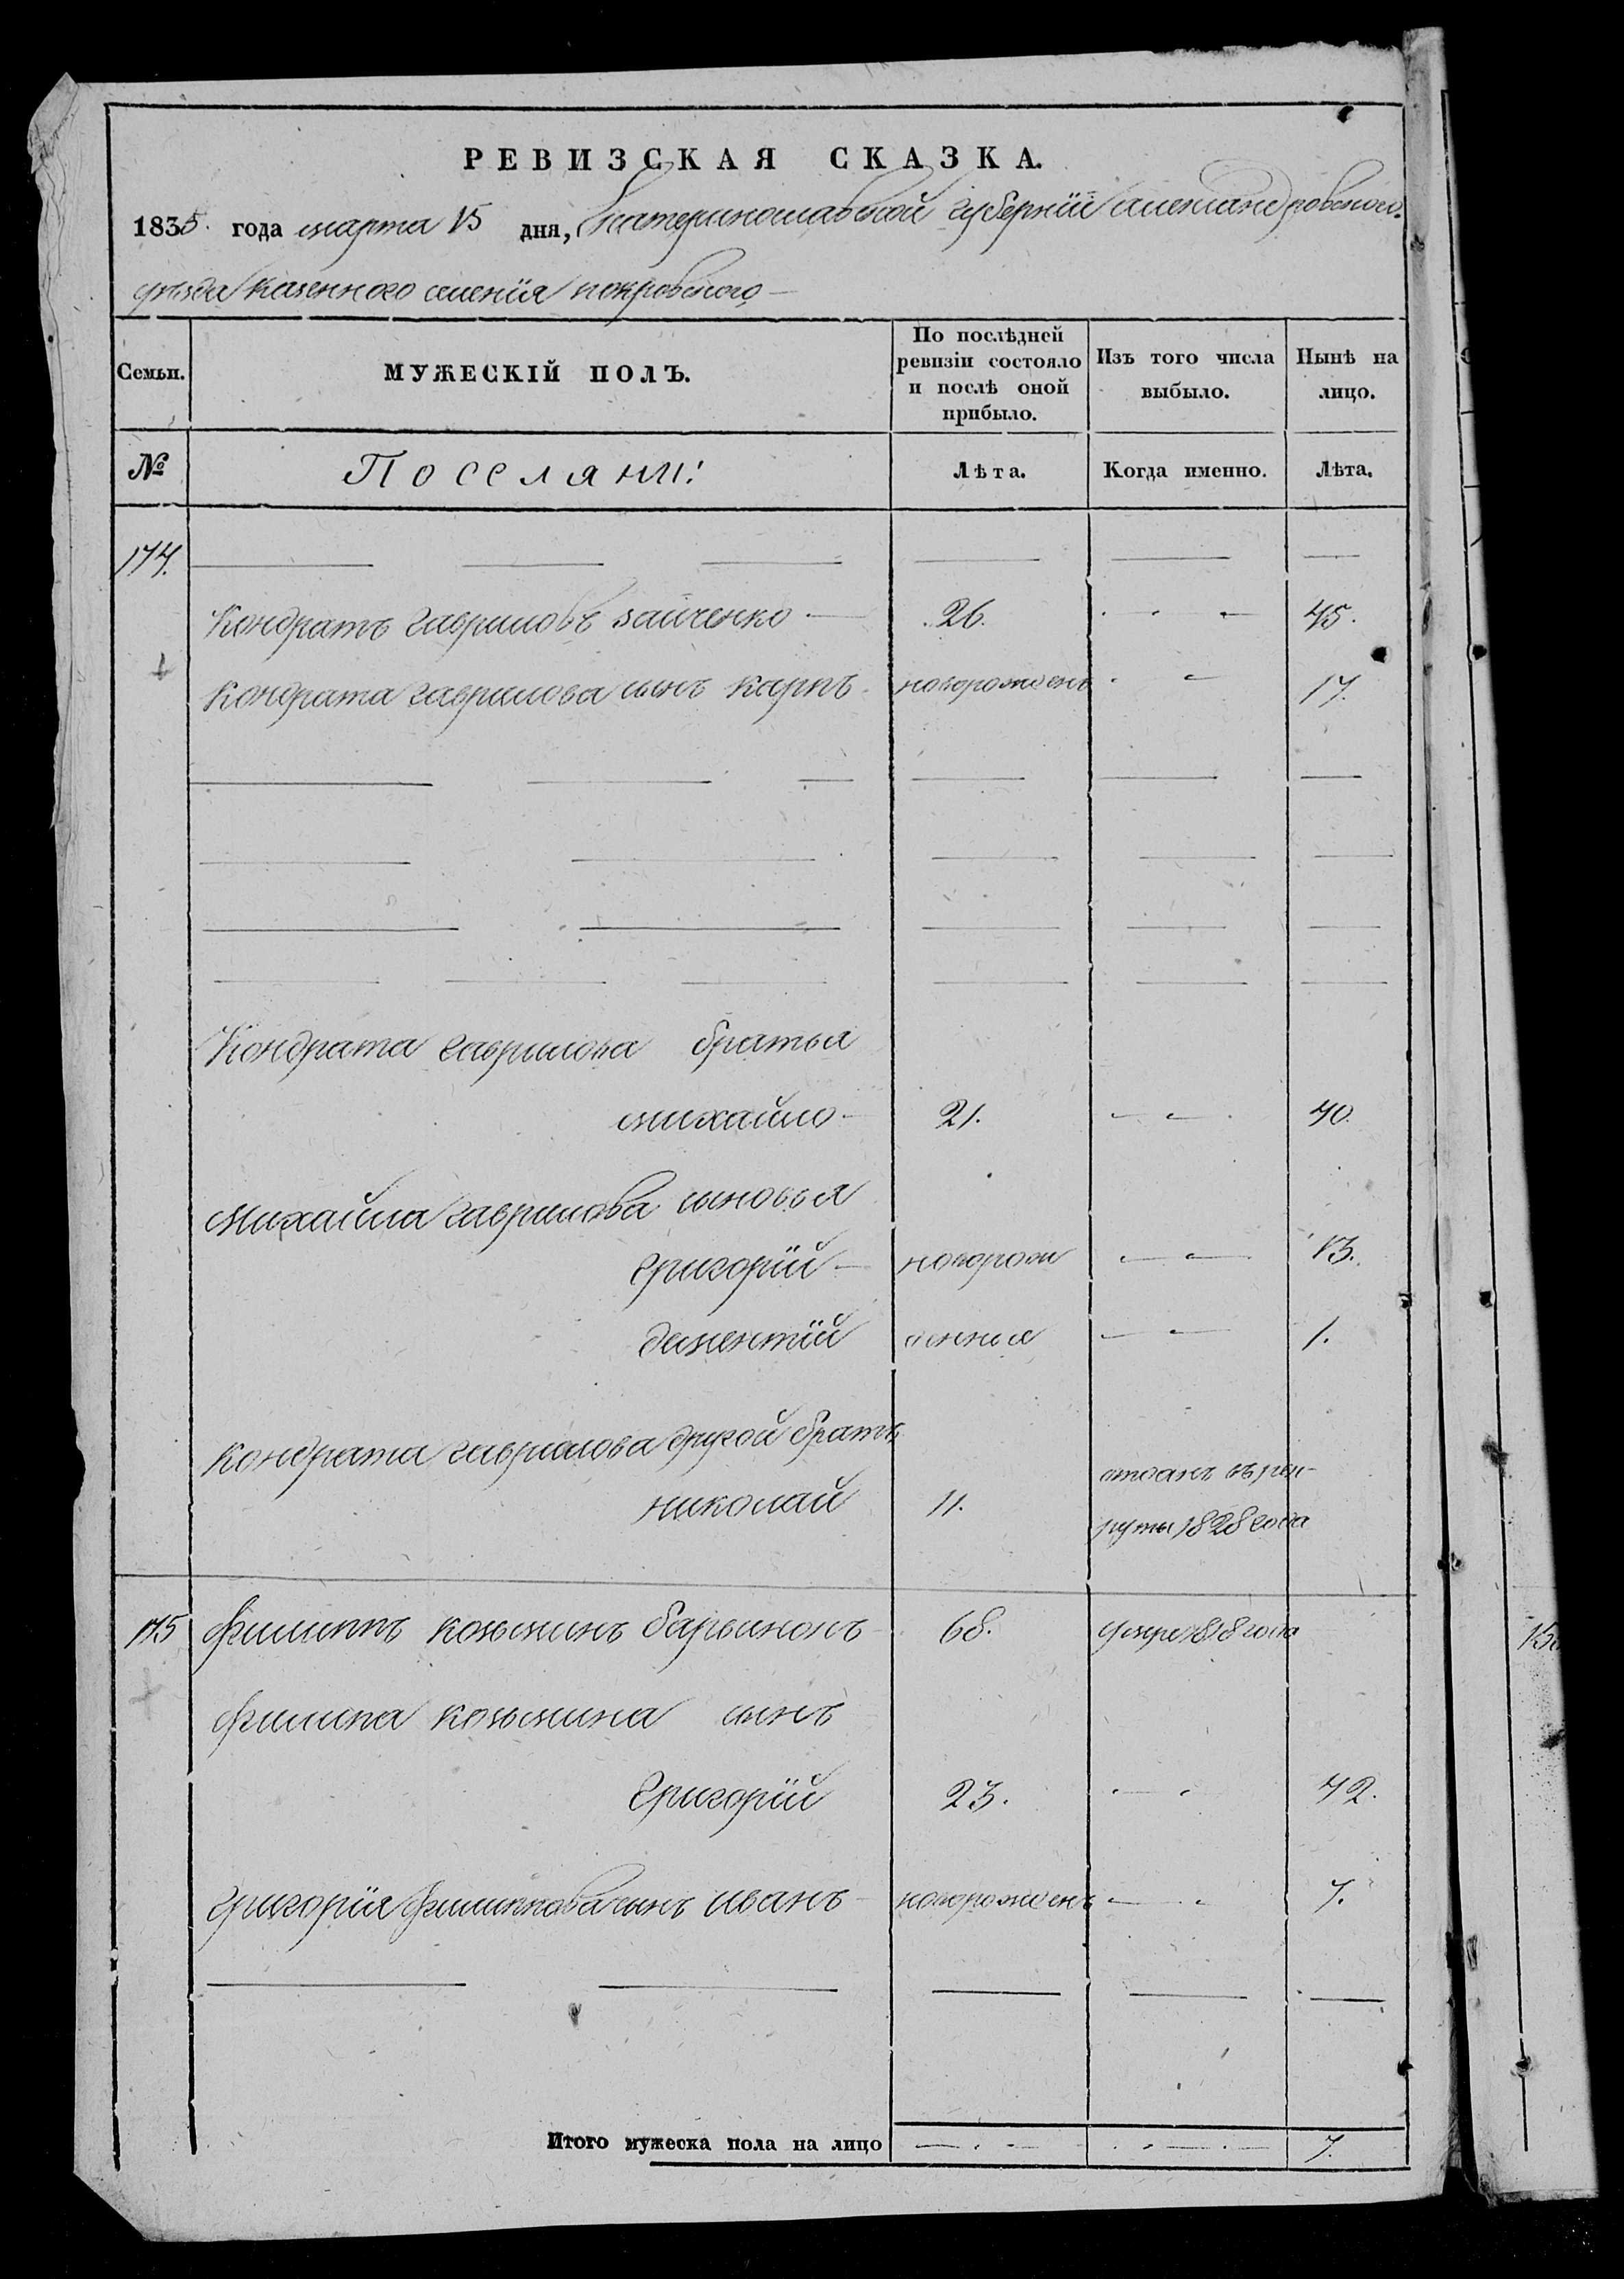 РЕВИЗСКАЯ СКАЗКА.
1835. года марта 15 дня, Екатеринославской губернїи александровского.
уѣзда казенного селенїя покровского —
Семьи. МУЖЕСКІЙ ПОЛЪ. По послѣдней ревизіи состояло и послѣ оной прибыло. Изъ того числа выбыло. Нынѣ на лицо.
№ Поселяни: Лѣта. Когда именно. Лѣта.
174.
Кондратъ гавриловъ зайченко — 26. 45.
Кондрата гаврилова сынъ карпъ новорожденъ 17.
Кондрата гаврилова братья
михайло — 21. 40.
михайла гаврилова сыновья
григорїй — новорож 13.
дементїй 1.
Кондрата гаврилова другой братъ
николай 11. отданъ въ рек-
руты 1828 года
175 филиппъ козьминъ 68. умре 1818 года
филипа козьмина сынъ
григорїй 23. 42.
григорїя филиппова сынъ иванъ новорожденъ 7.
Итого мужеска пола на лицо 7.